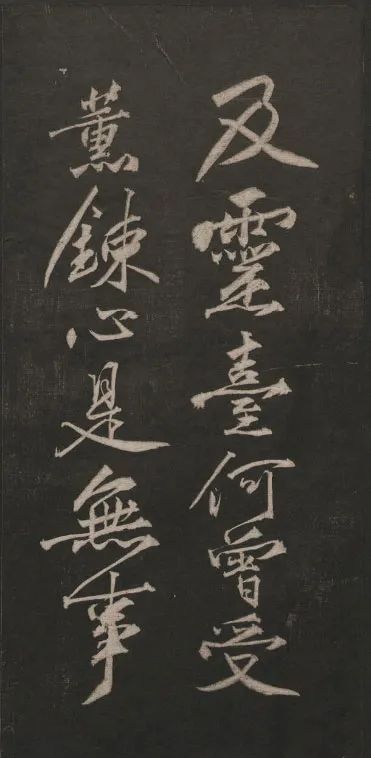 及靈臺何曾受
薰鍊心是無事